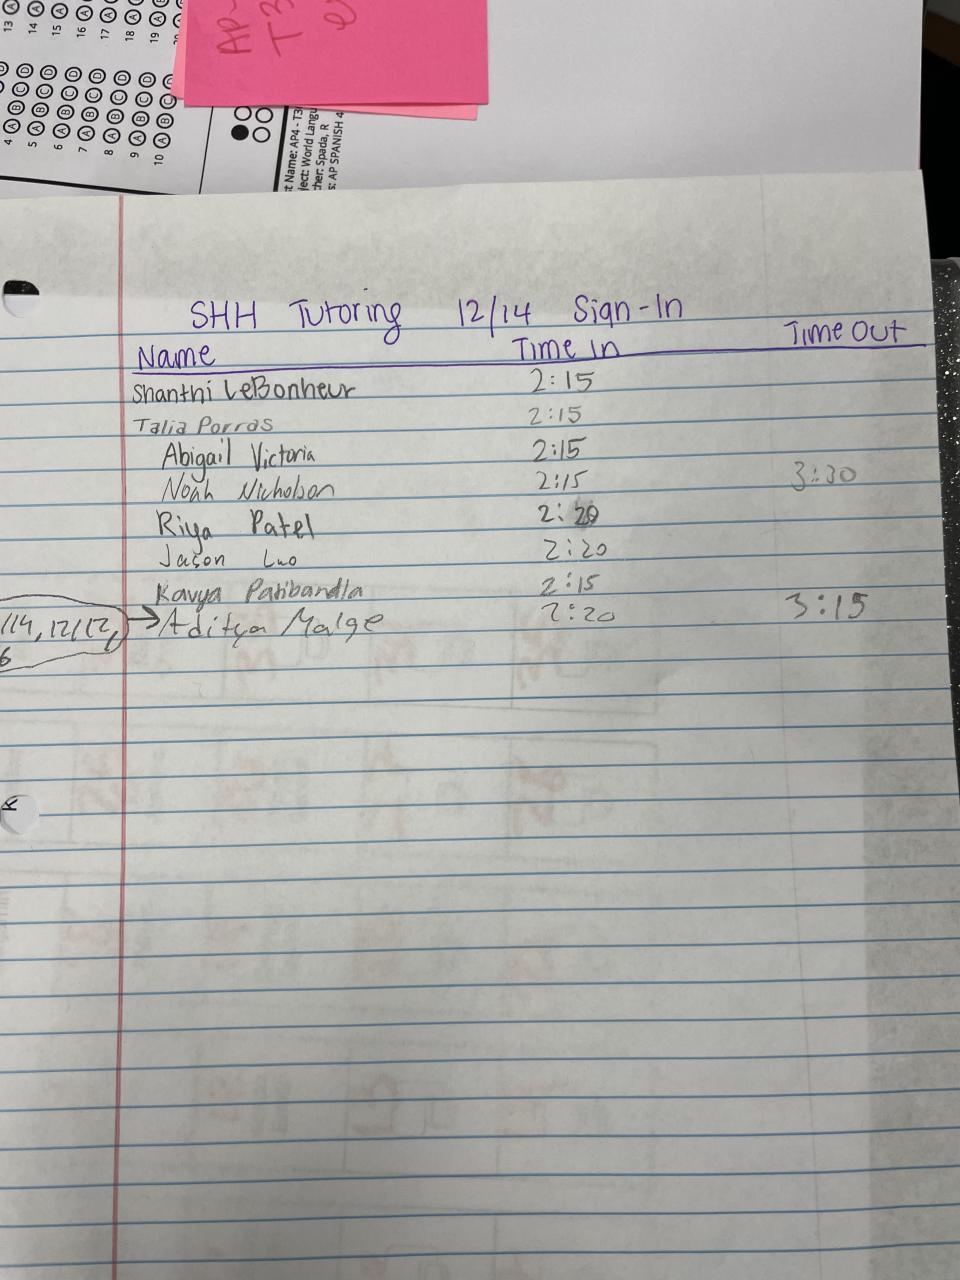 13 A
14 A
15 A
16 A
17 A
18 A
19 A
4 A B C D
5 A B C D
6 A B C D
7 A B C D
8 A B C D
9 A B C D
10 A B C D
AP-
T3
t Name: AP4 - T3
ject: World Langu
her: Spada, R
s: AP SPANISH 4
SHH Tutoring 12/14 Sign-In
Name Time In Time Out
Shanthi LeBonheur 2:15
Talia Porras 2:15
Abigail Victoria 2:15
Noah Nicholson 2:15 3:30
Riya Patel 2:20
Jason Luo 2:20
Kavya Patibandla 2:15
/14, 12/12, → Aditya Malge 2:20 3:15
6
K